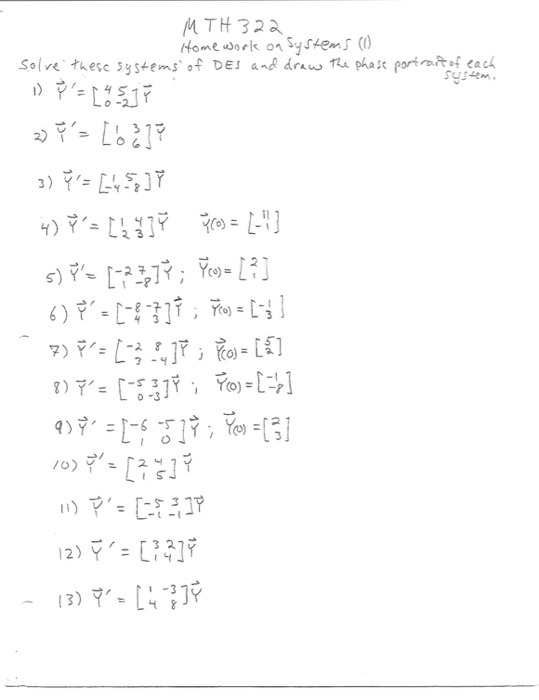 MTH 322
Homework on Systems (1)
Solve these systems of DES and draw the phase portrait of each system.
1) Y⃗' = [4 5; 0 -2] Y⃗
2) Y⃗' = [1 3; 0 6] Y⃗
3) Y⃗' = [1 5; -4 -8] Y⃗
4) Y⃗' = [1 4; 2 3] Y⃗ Y⃗(0) = [11; -1]
5) Y⃗' = [-2 7; 1 -8] Y⃗ ; Y⃗(0) = [2; 1]
6) Y⃗' = [-8 -7; 4 3] Y⃗ ; Y⃗(0) = [-1; 3]
7) Y⃗' = [-2 8; 3 -4] Y⃗ ; Y⃗(0) = [5; 2]
8) Y⃗' = [-5 3; 0 -3] Y⃗ ; Y⃗(0) = [-1; -8]
9) Y⃗' = [-6 -5; 1 0] Y⃗ ; Y⃗(0) = [2; 3]
10) Y⃗' = [2 4; 1 5] Y⃗
11) Y⃗' = [-5 3; -1 -1] Y⃗
12) Y⃗' = [3 2; 1 4] Y⃗
13) Y⃗' = [1 -3; 4 8] Y⃗